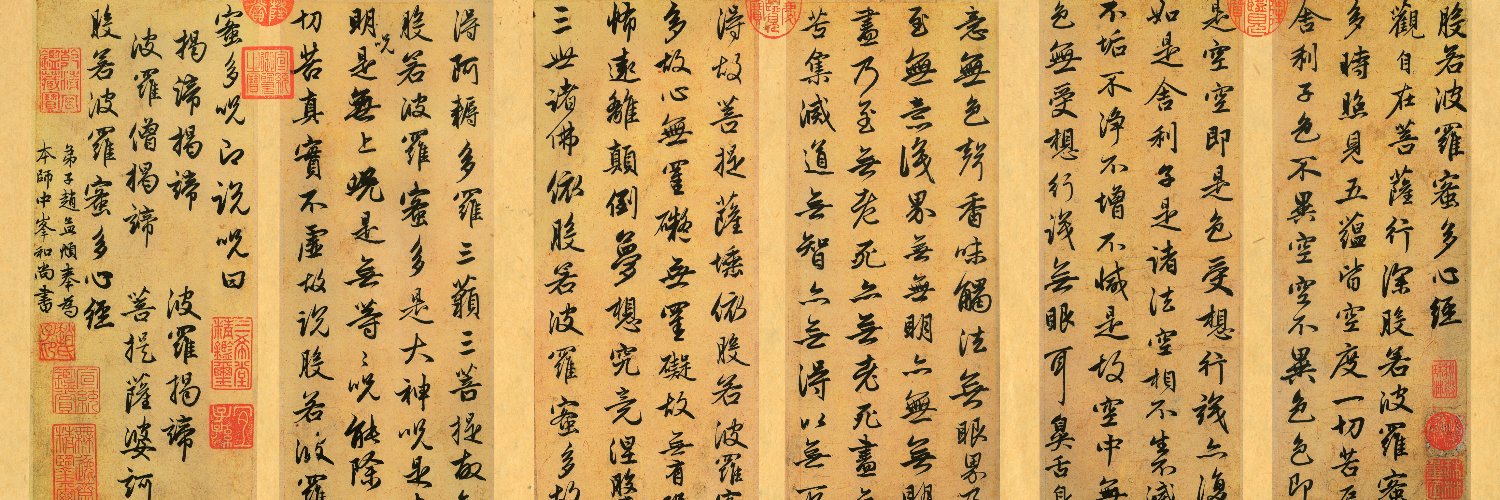 般若波羅蜜多心經
觀自在菩薩行深般若波羅蜜
多時照見五蘊皆空度一切苦厄
舍利子色不異空空不異色色即
是空空即是色受想行識亦復
如是舍利子是諸法空相不生滅
不垢不淨不增不減是故空中無
色無受想行識無眼耳鼻舌身
意無色聲香味觸法無眼界乃
至無意識界無無明亦無無明
盡乃至無老死亦無老死盡無
苦集滅道無智亦無得以無所
得故菩提薩埵依般若波羅蜜
多故心無罣礙無罣礙故無有恐
怖遠離顛倒夢想究竟涅槃
三世諸佛依般若波羅蜜多故
得阿耨多羅三藐三菩提故
般若波羅蜜多是大神咒是
明咒是無上咒是無等等咒能除
切苦真實不虛故說般若波羅
蜜多咒即說咒曰
揭諦揭諦 波羅揭諦
波羅僧揭諦 菩提薩婆訶
般若波羅蜜多心經
弟子趙孟頫奉為
本師中峯和尚書